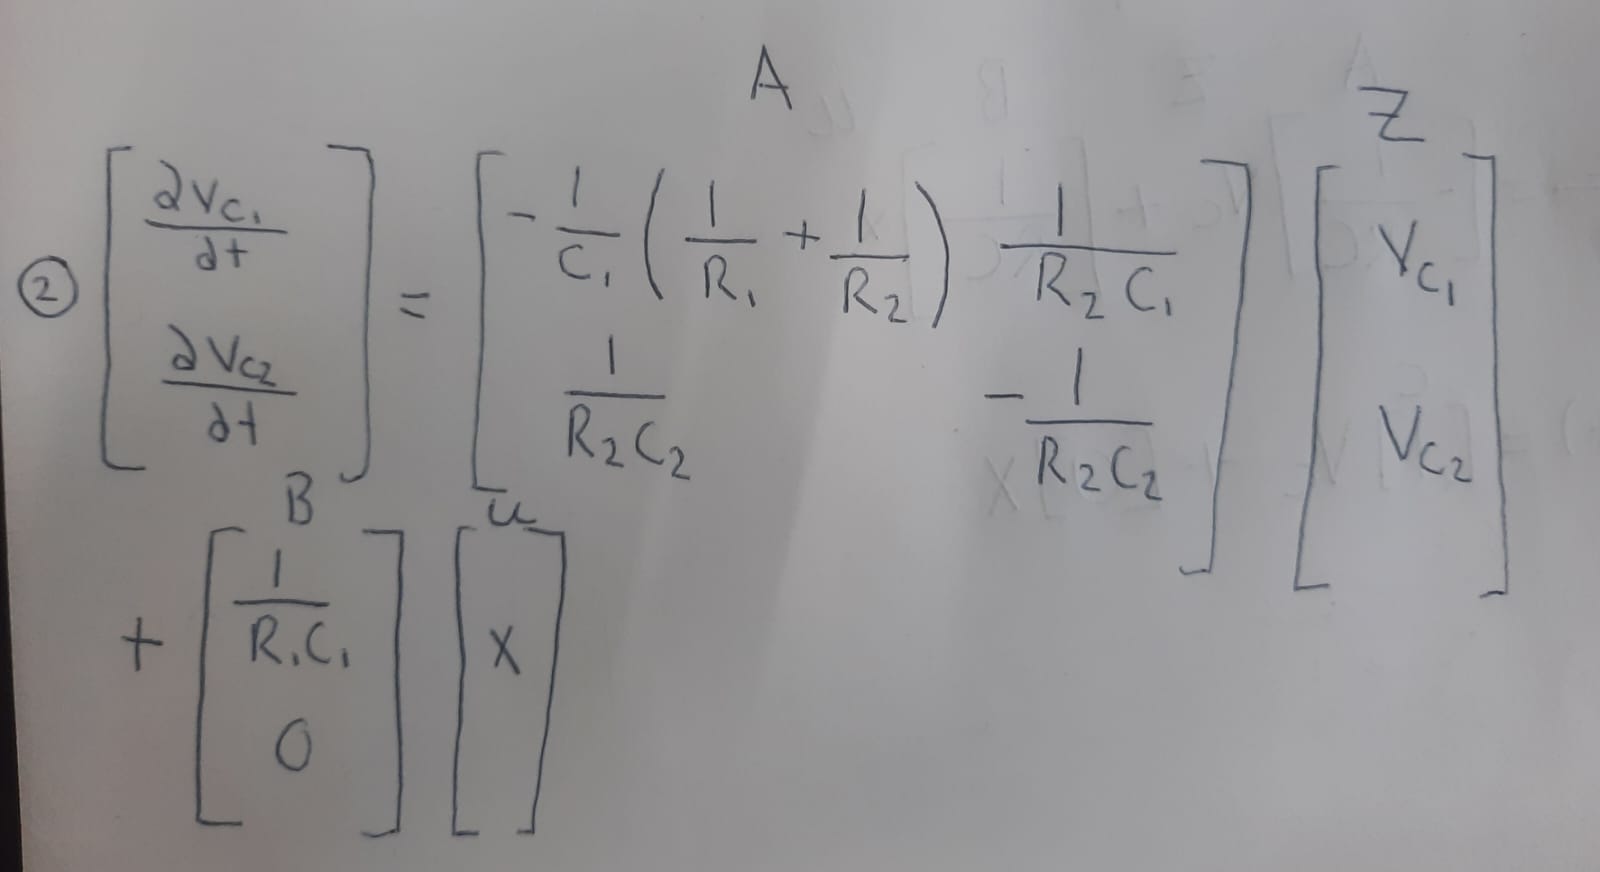 A Z
② [ ∂V_C₁/∂t ; ∂V_C₂/∂t ] = [ -1/C₁ (1/R₁ + 1/R₂)  1/(R₂ C₁) ; 1/(R₂ C₂)  -1/(R₂ C₂) ] [ V_C₁ ; V_C₂ ]
B u
+ [ 1/(R₁C₁) ; 0 ] [ X ]